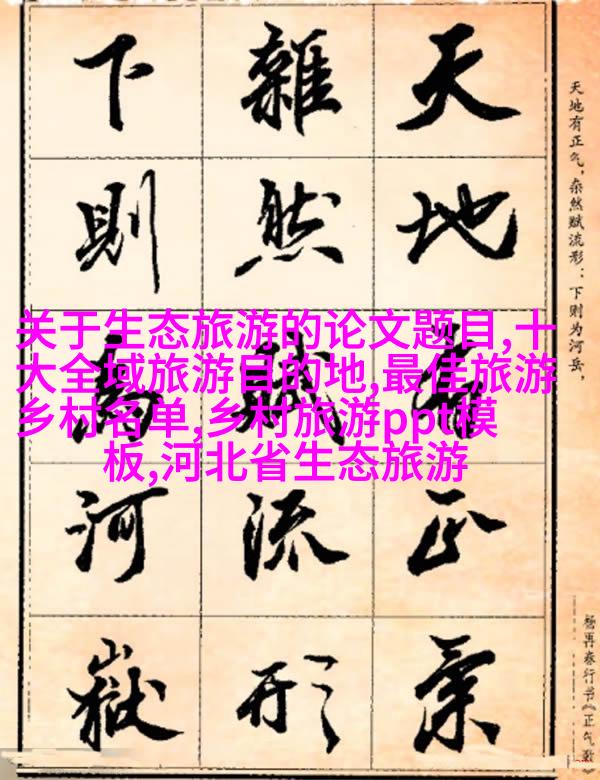 天地有正氣
雜然賦流形
下則為河嶽
天地有正气，杂然赋流形：下则为河岳，
杨再春行书《正气歌》
关于生态旅游的论文题目,十
大全域旅游目的地,最佳旅游
乡村名单,乡村旅游ppt模
板,河北省生态旅游